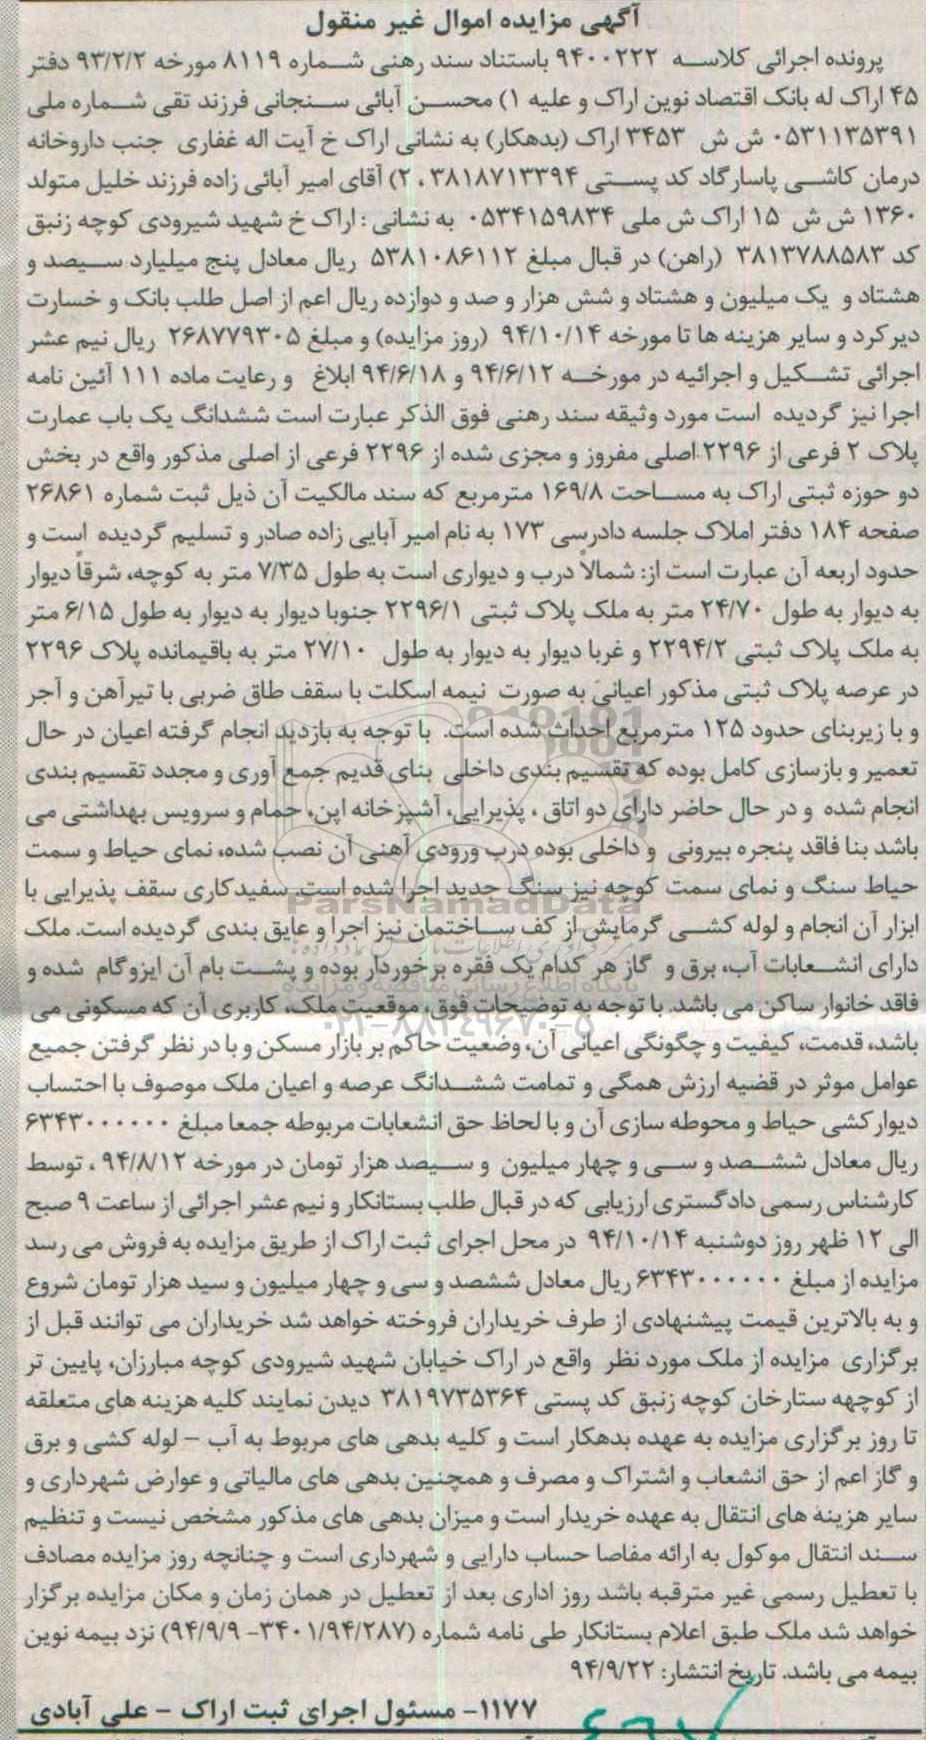 آگهی مزایده اموال غیر منقول
پرونده اجرائی کلاسه ۹۴۰۰۲۲۲ باستناد سند رهنی شماره ۸۱۱۹ مورخه ۹۳/۲/۲ دفتر
۴۵ اراک له بانک اقتصاد نوین اراک و علیه ۱) محسن آبائی سنجانی فرزند تقی شماره ملی
۰۵۳۱۱۳۵۳۹۱ ش ش ۳۴۵۳ اراک (بدهکار) به نشانی اراک خ آیت اله غفاری جنب داروخانه
درمان کاشی پاسارگاد کد پستی ۳۸۱۸۷۱۳۳۹۴ ، ۲) آقای امیر آبائی زاده فرزند خلیل متولد
۱۳۶۰ ش ش ۱۵ اراک ش ملی ۰۵۳۴۱۵۹۸۳۴ به نشانی : اراک خ شهید شیرودی کوچه زنبق
کد ۳۸۱۳۷۸۸۵۸۳ (راهن) در قبال مبلغ ۵۳۸۱۰۸۶۱۱۲ ریال معادل پنج میلیارد سیصد و
هشتاد و یک میلیون و هشتاد و شش هزار و صد و دوازده ریال اعم از اصل طلب بانک و خسارت
دیرکرد و سایر هزینه ها تا مورخه ۹۴/۱۰/۱۴ (روز مزایده) و مبلغ ۲۶۸۷۷۹۳۰۵ ریال نیم عشر
اجرائی تشکیل و اجرائیه در مورخه ۹۴/۶/۱۲ و ۹۴/۶/۱۸ ابلاغ و رعایت ماده ۱۱۱ آئین نامه
اجرا نیز گردیده است مورد وثیقه سند رهنی فوق الذکر عبارت است ششدانگ یک باب عمارت
پلاک ۲ فرعی از ۲۲۹۶ اصلی مفروز و مجزی شده از ۲۲۹۶ فرعی از اصلی مذکور واقع در بخش
دو حوزه ثبتی اراک به مساحت ۱۶۹/۸ مترمربع که سند مالکیت آن ذیل ثبت شماره ۲۶۸۶۱
صفحه ۱۸۴ دفتر املاک جلسه دادرسی ۱۷۳ به نام امیر آبایی زاده صادر و تسلیم گردیده است و
حدود اربعه آن عبارت است از: شمالاً درب و دیواری است به طول ۷/۳۵ متر به کوچه، شرقاً دیوار
به دیوار به طول ۲۴/۷۰ متر به ملک پلاک ثبتی ۲۲۹۶/۱ جنوبا دیوار به دیوار به طول ۶/۱۵ متر
به ملک پلاک ثبتی ۲۲۹۴/۲ و غربا دیوار به دیوار به طول ۲۷/۱۰ متر به باقیمانده پلاک ۲۲۹۶
در عرصه پلاک ثبتی مذکور اعیانی به صورت نیمه اسکلت با سقف طاق ضربی با تیرآهن و آجر
و با زیربنای حدود ۱۲۵ مترمربع احداث شده است. با توجه به بازدید انجام گرفته اعیان در حال
تعمیر و بازسازی کامل بوده که تقسیم بندی داخلی بنای قدیم جمع آوری و مجدد تقسیم بندی
انجام شده و در حال حاضر دارای دو اتاق ، پذیرایی، آشپزخانه اپن، حمام و سرویس بهداشتی می
باشد بنا فاقد پنجره بیرونی و داخلی بوده درب ورودی آهنی آن نصب شده، نمای حیاط و سمت
حیاط سنگ و نمای سمت کوچه نیز سنگ جدید اجرا شده است. سفیدکاری سقف پذیرایی با
ParsNamadData
ابزار آن انجام و لوله کشی گرمایش از کف ساختمان نیز اجرا و عایق بندی گردیده است. ملک
دارای انشعابات آب، برق و گاز هر کدام یک فقره برخوردار بوده و پشت بام آن ایزوگام شده و
پایگاه اطلاع رسانی مناقصه و مزایده
فاقد خانوار ساکن می باشد. با توجه به توضیحات فوق، موقعیت ملک، کاربری آن که مسکونی می
۰۲۱-۸۸۳۴۹۶۷۰-۵
باشد، قدمت، کیفیت و چگونگی اعیانی آن، وضعیت حاکم بر بازار مسکن و با در نظر گرفتن جمیع
عوامل موثر در قضیه ارزش همگی و تمامت ششدانگ عرصه و اعیان ملک موصوف با احتساب
دیوارکشی حیاط و محوطه سازی آن و با لحاظ حق انشعابات مربوطه جمعا مبلغ ۶۳۴۳۰۰۰۰۰۰
ریال معادل ششصد و سی و چهار میلیون و سیصد هزار تومان در مورخه ۹۴/۸/۱۲ ، توسط
کارشناس رسمی دادگستری ارزیابی که در قبال طلب بستانکار و نیم عشر اجرائی از ساعت ۹ صبح
الی ۱۲ ظهر روز دوشنبه ۹۴/۱۰/۱۴ در محل اجرای ثبت اراک از طریق مزایده به فروش می رسد
مزایده از مبلغ ۶۳۴۳۰۰۰۰۰۰ ریال معادل ششصد و سی و چهار میلیون و سید هزار تومان شروع
و به بالاترین قیمت پیشنهادی از طرف خریداران فروخته خواهد شد خریداران می توانند قبل از
برگزاری مزایده از ملک مورد نظر واقع در اراک خیابان شهید شیرودی کوچه مبارزان، پایین تر
از کوچهه ستارخان کوچه زنبق کد پستی ۳۸۱۹۷۳۵۳۶۴ دیدن نمایند کلیه هزینه های متعلقه
تا روز برگزاری مزایده به عهده بدهکار است و کلیه بدهی های مربوط به آب – لوله کشی و برق
و گاز اعم از حق انشعاب و اشتراک و مصرف و همچنین بدهی های مالیاتی و عوارض شهرداری و
سایر هزینه های انتقال به عهده خریدار است و میزان بدهی های مذکور مشخص نیست و تنظیم
سند انتقال موکول به ارائه مفاصا حساب دارایی و شهرداری است و چنانچه روز مزایده مصادف
با تعطیل رسمی غیر مترقبه باشد روز اداری بعد از تعطیل در همان زمان و مکان مزایده برگزار
خواهد شد ملک طبق اعلام بستانکار طی نامه شماره (۳۴۰۱/۹۴/۲۸۷- ۹۴/۹/۹) نزد بیمه نوین
بیمه می باشد. تاریخ انتشار: ۹۴/۹/۲۲
۱۱۷۷- مسئول اجرای ثبت اراک – علی آبادی